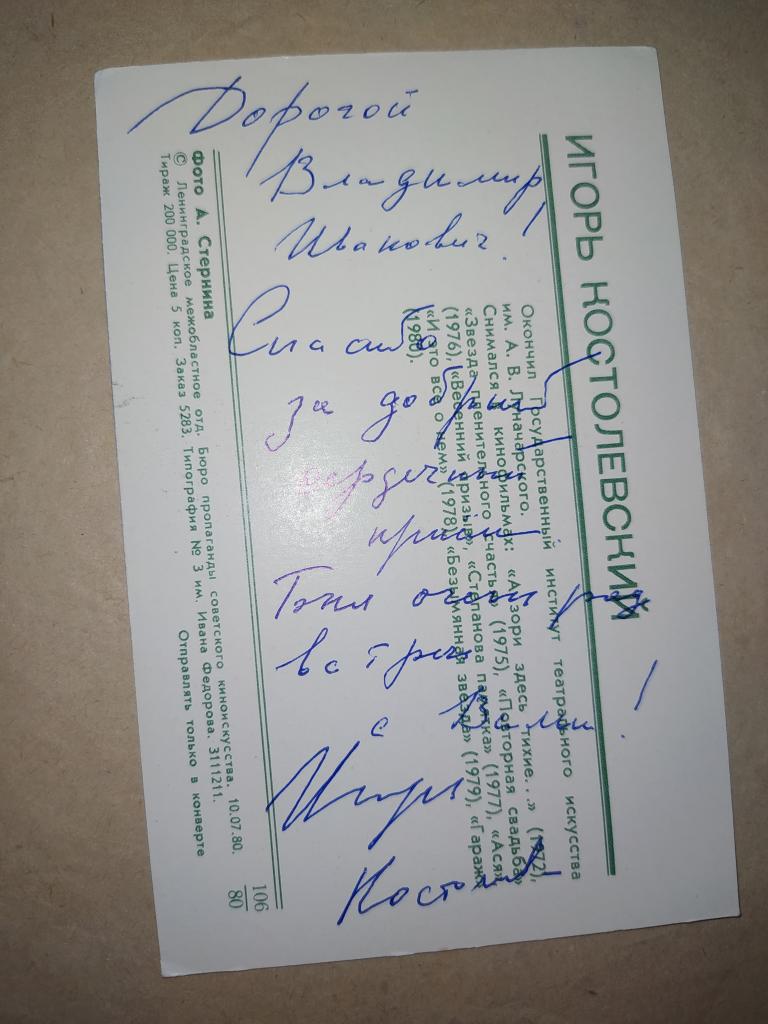 Дорогой
Владимир
Иванович!
Спасибо
за добрый
сердечный
прием
очень рад
встрече
с Вами!
Игорь
ИГОРЬ КОСТОЛЕВСКИЙ
Окончил Государственный институт театрального искусства
им. А. В. Луначарского.
Снимался в кинофильмах: «А зори здесь тихие...» (1972),
«Звезда пленительного счастья» (1975), «Повторная свадьба»
(1976), «Весенний призыв», «Степанова памятка» (1977), «Ася»,
«И это все о нем» (1978), «Безымянная звезда» (1979), «Гараж»
(1980).
Фото А. Стернина
© Ленинградское межобластное отд. Бюро пропаганды советского киноискусства. 10.07.80.
Тираж 200 000. Цена 5 коп. Заказ 5283. Типография № 3 им. Ивана Федорова. 3111211.
Отправлять только в конверте
106
80